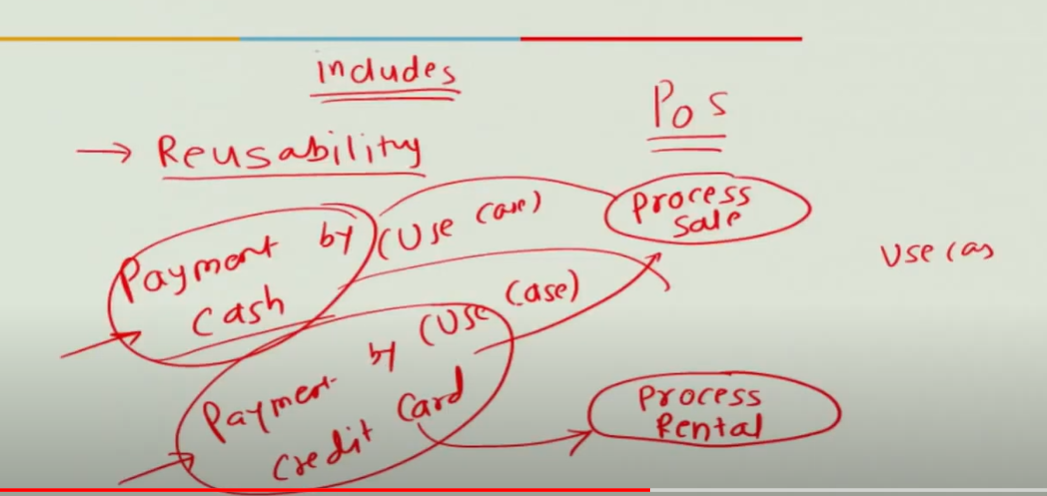 includes
→ Reusability
POS
Payment by
Cash
(Use Case)
Process
Sale
Use Cas
Payment by
Credit Card
(Use Case)
Process
Rental